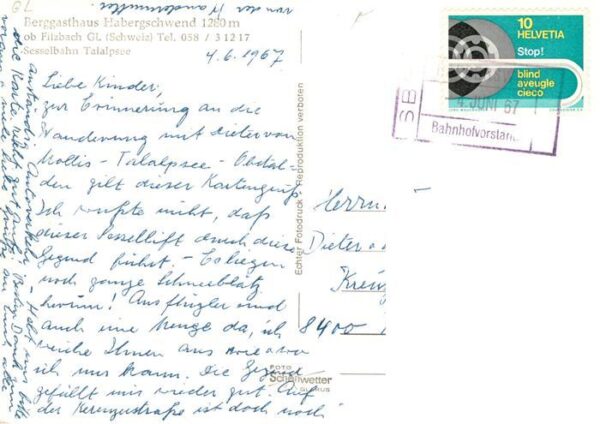 Berggasthaus Habergschwend 1280 m
ob Filzbach GL (Schweiz) Tel. 058 / 3 12 17
Sesselbahn Talalpsee
4.6.1967
Liebe Kinder,
zur Erinnerung an die
Wanderung mit Dieter von
Mollis - Talalpsee - Obstal-
den gilt dieser Kartengruß.
Ich wußte nicht, daß
dieser Sessellift durch diese
Gegend führt. - Es liegen
noch ganze Schneeblätz
herum! Ausflügler sind
auch eine Menge da, ich
weiche Ihnen aus wo
ich nur kann. Die Gegend
gefällt mir wieder gut. Auf
der Kerenzerstraße ist doch noch
Echter Fotodruck Reproduktion verboten
FOTO
Schönwetter
GLARUS
10
HELVETIA
Stop!
blind
aveugle
cieco
SB
4. JUNI 67
Bahnhofvorstand
Herrn
Dieter
8400